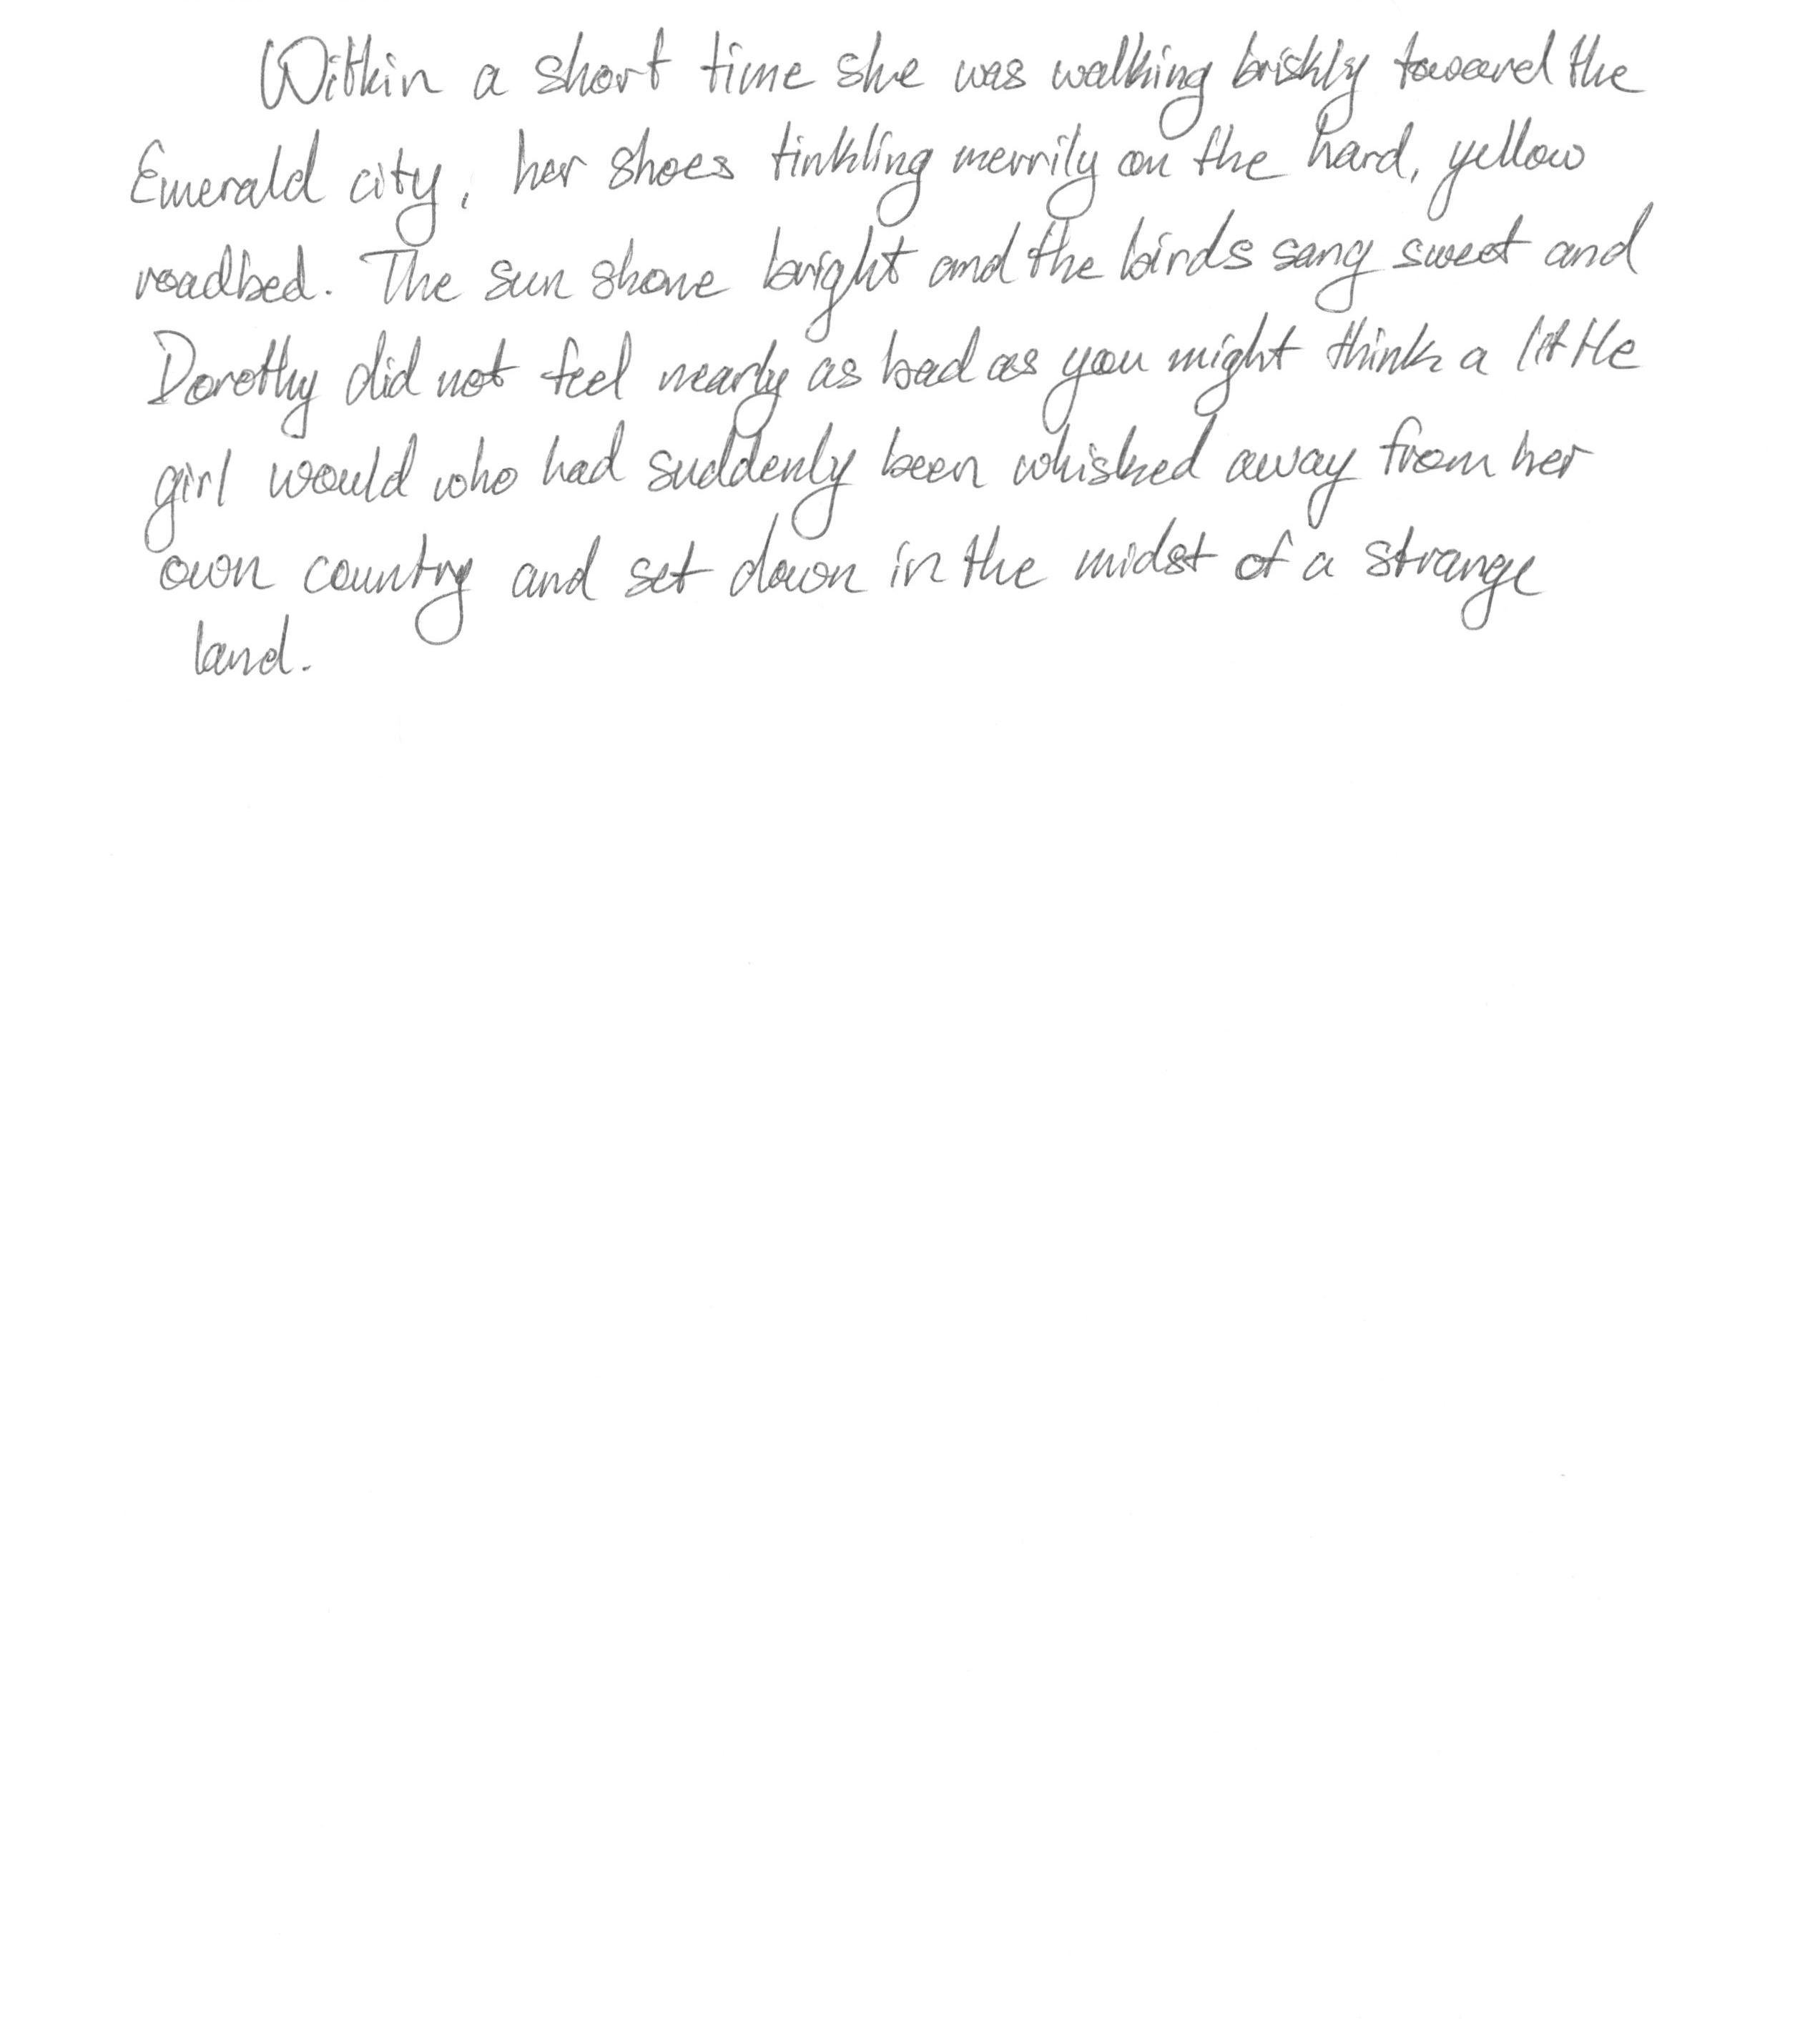 Within a short time she was walking briskly toward the
Emerald city, her shoes tinkling merrily on the hard, yellow
roadbed. The sun shone bright and the birds sang sweet and
Dorothy did not feel nearly as bad as you might think a little
girl would who had suddenly been whisked away from her
own country and set down in the midst of a strange
land.